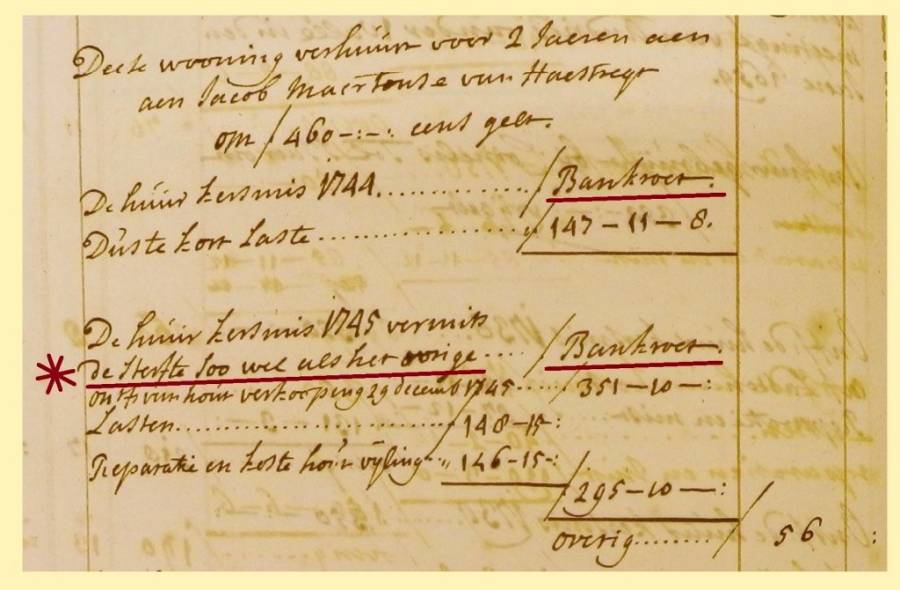 Deese wooning verhuurt voor 2 Jaeren aen
aen Jacob Maertense van Haestregt
om ƒ 460-:-: eens gelt.
De huur kersmis 1744.............. ƒ Bankroet.
Duste kort Laste................ „ 147-11-8.
De huur kersmis 1745 vermits
de Sterfte Soo wel als het vorige.... ƒ Bankroet.
ontf: van hout verkooping 29 decemb 1745..... ƒ 351-10-:
Lasten.................... ƒ 148-15-:
Reparatie en koste hout „ 146-15-:
ƒ 295-10-:
overig........ ƒ 56 :